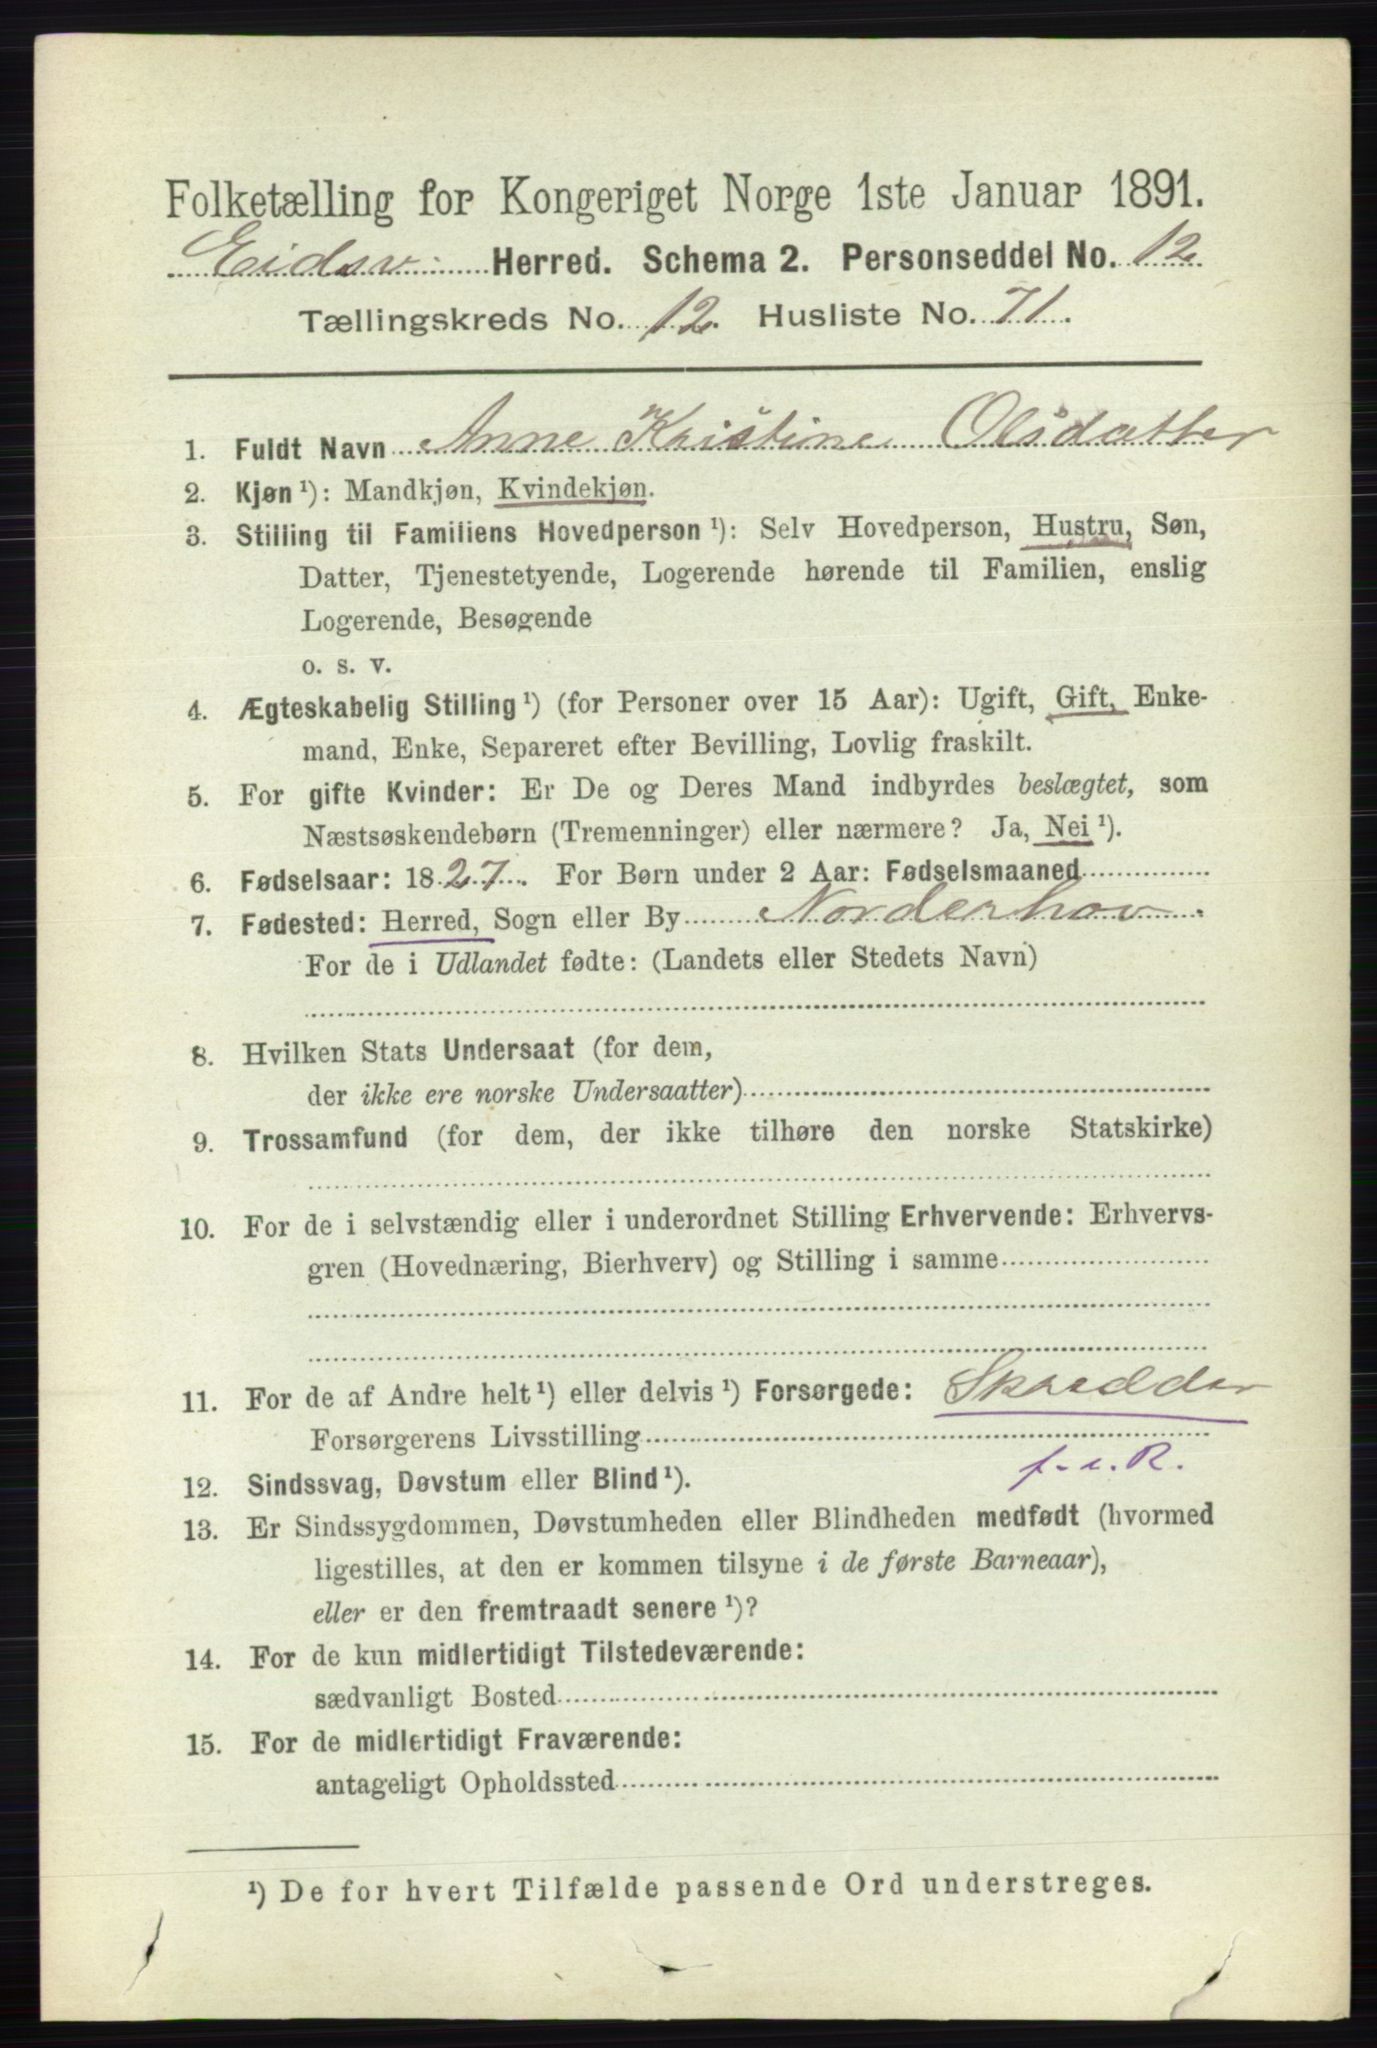 Folketælling for Kongeriget Norge 1ste Januar 1891.
Eidsv. Herred. Schema 2. Personseddel No. 12.
Tællingskreds No. 12. Husliste No. 71.
1. Fuldt Navn Anne Kristine Olsdatter
2. Kjøn ¹): Mandkjøn, Kvindekjøn.
3. Stilling til Familiens Hovedperson ¹): Selv Hovedperson, Hustru, Søn,
Datter, Tjenestetyende, Logerende hørende til Familien, enslig
Logerende, Besøgende
o. s. v.
4. Ægteskabelig Stilling ¹) (for Personer over 15 Aar): Ugift, Gift, Enke-
mand, Enke, Separeret efter Bevilling, Lovlig fraskilt.
5. For gifte Kvinder: Er De og Deres Mand indbyrdes beslægtet, som
Næstsøskendebørn (Tremenninger) eller nærmere? Ja, Nei ¹).
6. Fødselsaar: 1827. For Børn under 2 Aar: Fødselsmaaned
7. Fødested: Herred, Sogn eller By Norderhov.
For de i Udlandet fødte: (Landets eller Stedets Navn)
8. Hvilken Stats Undersaat (for dem,
der ikke ere norske Undersaatter)
9. Trossamfund (for dem, der ikke tilhøre den norske Statskirke)
10. For de i selvstændig eller i underordnet Stilling Erhvervende: Erhvervs-
gren (Hovednæring, Bierhverv) og Stilling i samme
11. For de af Andre helt ¹) eller delvis ¹) Forsørgede: Skrædder
Forsørgerens Livsstilling
f.u.R.
12. Sindssvag, Døvstum eller Blind ¹).
13. Er Sindssygdommen, Døvstumheden eller Blindheden medfødt (hvormed
ligestilles, at den er kommen tilsyne i de første Barneaar),
eller er den fremtraadt senere ¹)?
14. For de kun midlertidigt Tilstedeværende:
sædvanligt Bosted
15. For de midlertidigt Fraværende:
antageligt Opholdssted
¹) De for hvert Tilfælde passende Ord understreges.